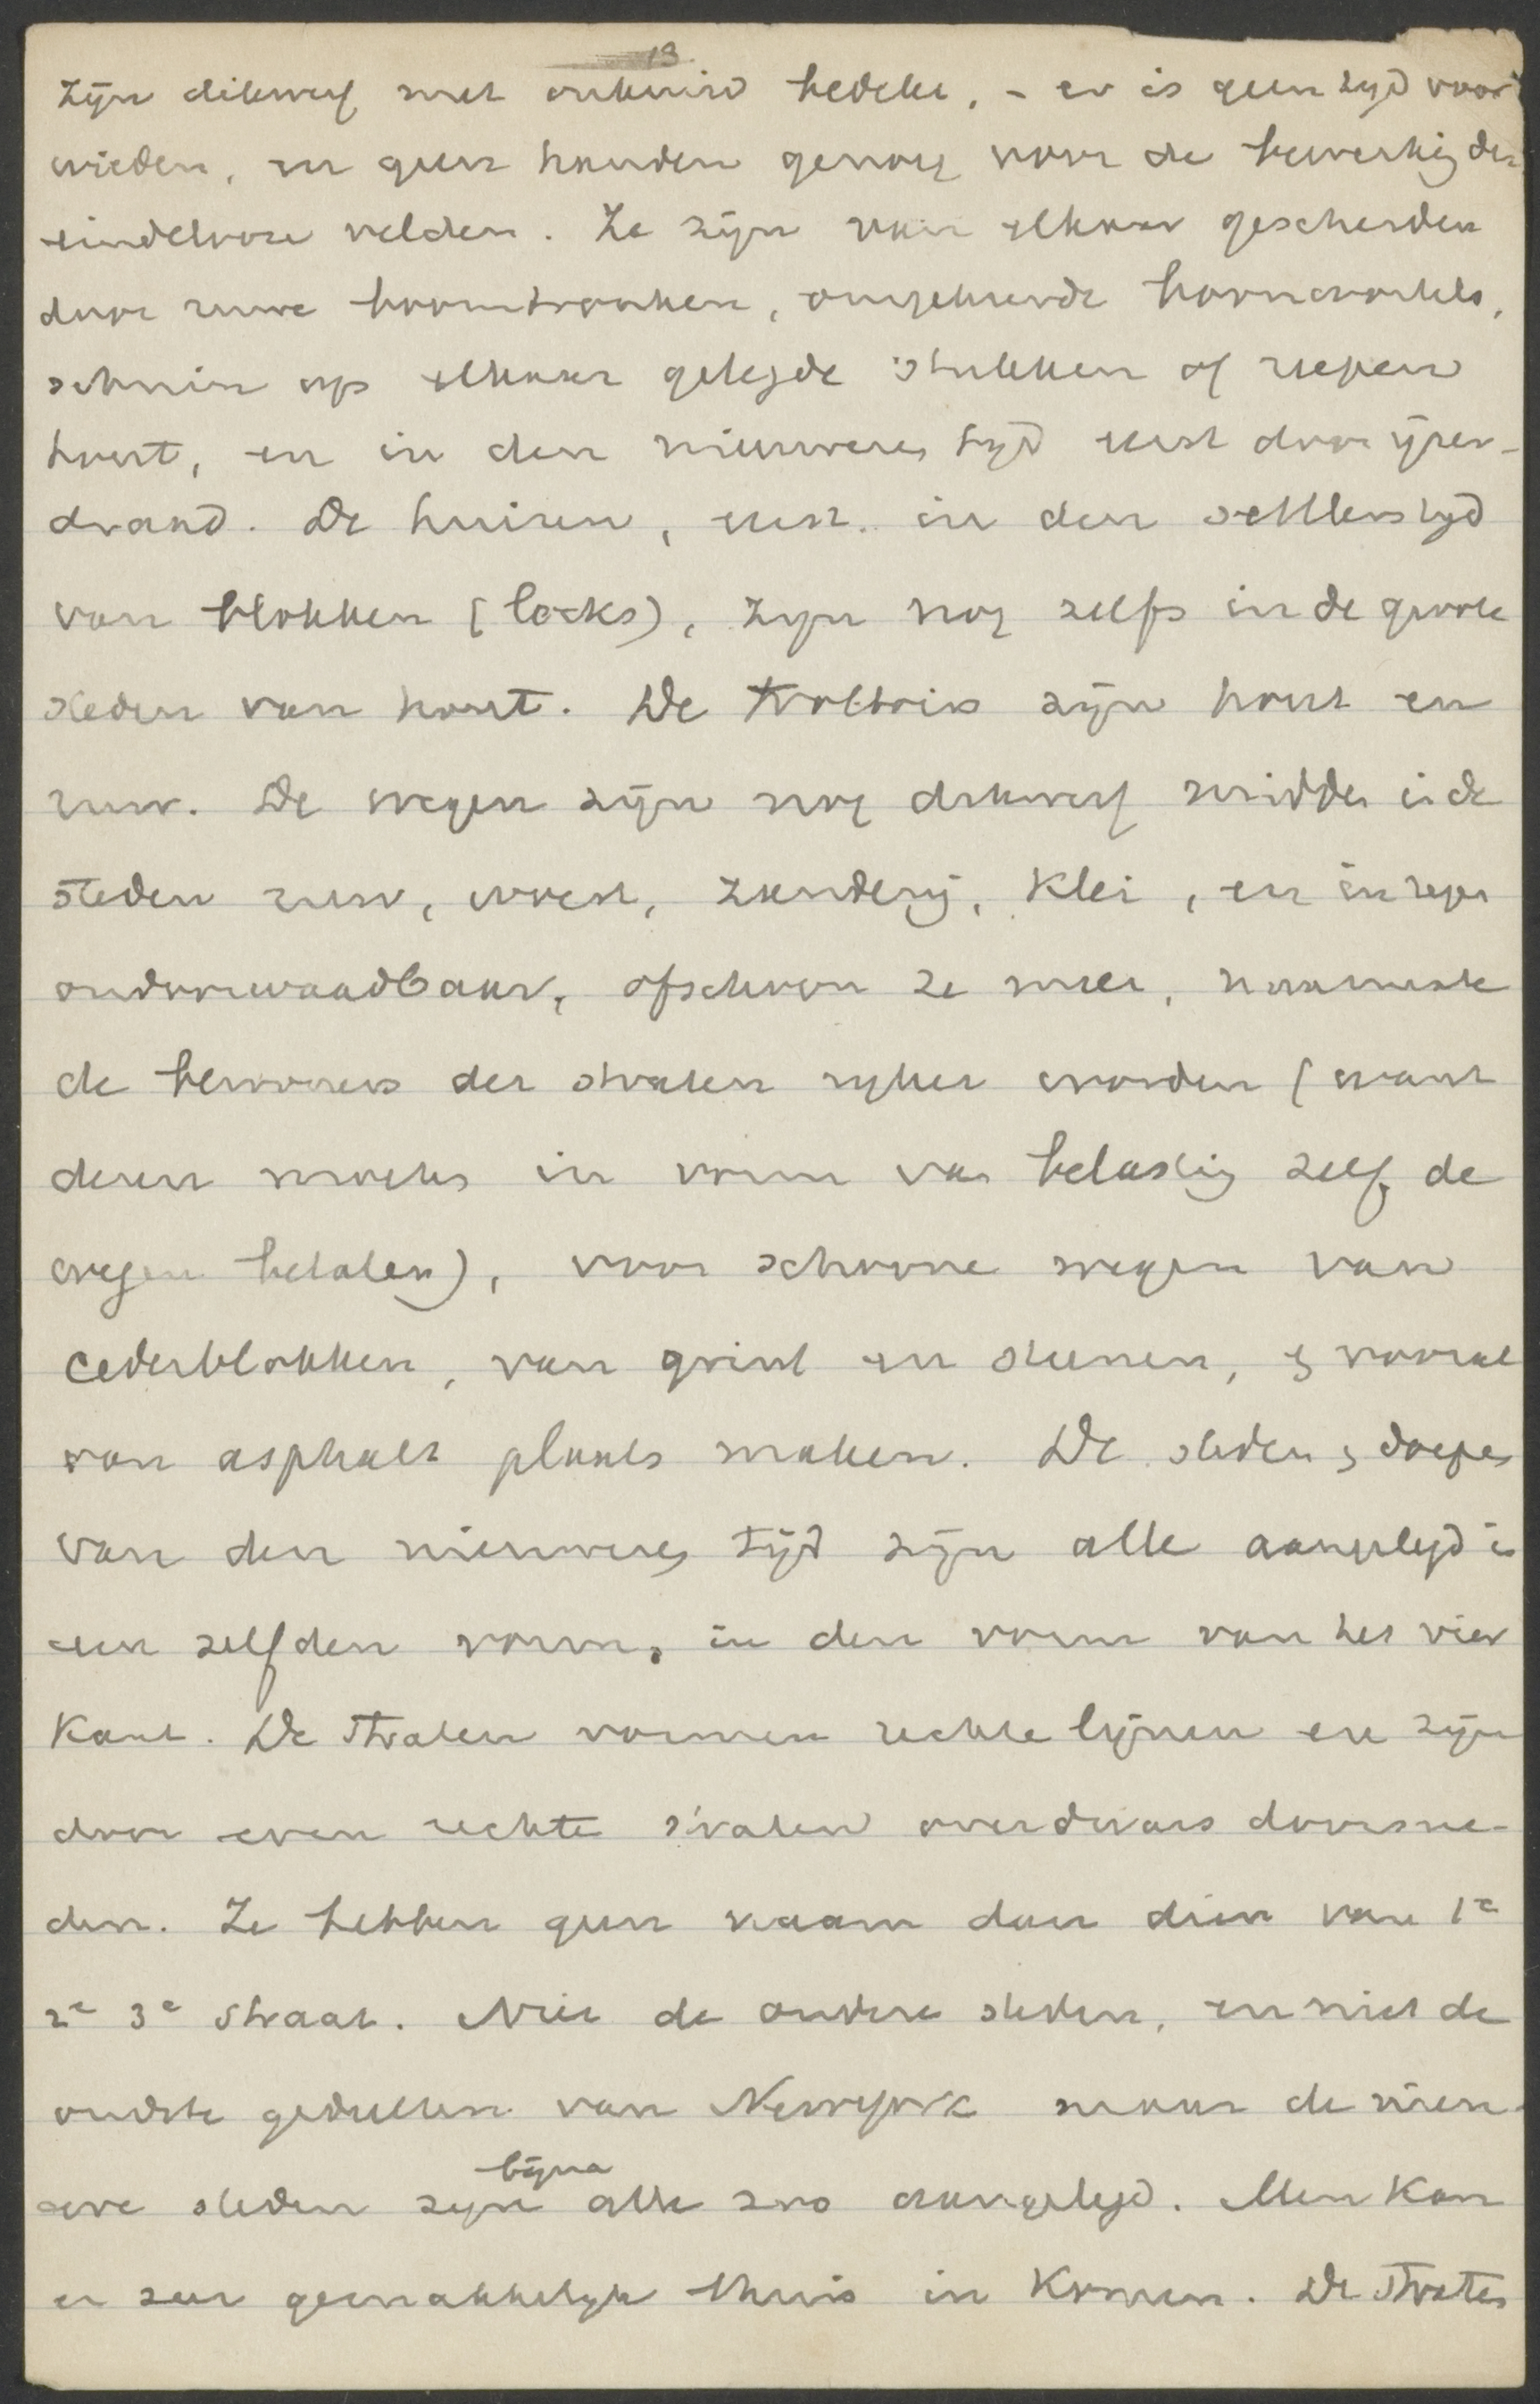 13
zijn dikwerf met onkruid bedekt, - er is geen tyd voor
wieden, en geen handen genoeg voor de bewerking der
eindelooze velden. Ze zijn van elkaar gescheiden
door ruwe boomtronken, omgekeerde boomwortels,
schuin op elkaar gelegde stukken of reepen
hout, en in den nieuweren tyd eerst door ijzer-
draad. De huizen, eerst in den settlerstyd
van blokken (locks), zyn nog zelfs in de groote
steden van hout. De trottoirs zijn hout en
ruw. De wegen zijn nog dikwerf midden in de
steden ruw, woest, zanderig, klei, en in regen
ondoorwaadbaar, ofschoon ze meer, naarmate
de bewoners der straten ryker worden (want
dezen moeten in vorm van belasting zelf de
wegen betalen), voor schoone wegen van
cederblokken, van grint en steenen, & vooral
van asphalt plaats maken. De steden & dorpen
van den nieuweren tijd zijn alle aangelegd in
een zelfden vorm, in den vorm van het vier
kant. De straten vormen rechte lijnen en zijn
door even rechte straten overdwars doorsne-
den. Ze hebben geen naam dan dien van 1e
2e 3e straat. Niet de oudere steden, en niet de
oudste gedeelten van Newyork maar de nieu-
were steden zyn bijna alle zoo aangelegd. Men kan
er zeer gemakkelyk thuis in komen. De straten